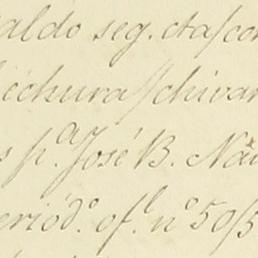 aldo seg. cta/con
echura/chivar
s p.ª José B. Na
eriód.º of.l nº 50/5